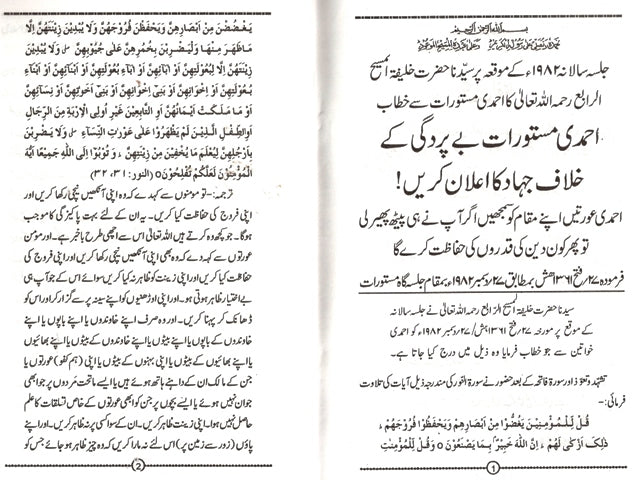 بسم اللہ الرحمن الرحیم
نحمدہ ونصلی علی رسولہ الکریم وعلی عبدہ المسیح الموعود
جلسہ سالانہ ۱۹۸۲ء کے موقعہ پر سیدنا حضرت خلیفۃ المسیح
الرابع رحمہ اللہ تعالیٰ کا احمدی مستورات سے خطاب
احمدی مستورات بے پردگی کے
خلاف جہاد کا اعلان کریں!
احمدی عورتیں اپنے مقام کو سمجھیں اگر آپ نے ہی پیٹھ پھیر لی
تو پھر کون دین کی قدروں کی حفاظت کرے گا
فرمودہ ۲۷/فتح ۱۳۶۱ھش بمطابق ۲۷/دسمبر ۱۹۸۲ء بمقام جلسہ گاہ مستورات
سیدنا حضرت خلیفۃ المسیح الرابع رحمہ اللہ تعالیٰ نے جلسہ سالانہ
کے موقع پر مورخہ ۲۷/فتح ۱۳۶۱ہش/۲۷/دسمبر ۱۹۸۲ء کو احمدی
خواتین سے جو خطاب فرمایا وہ ذیل میں درج کیا جاتا ہے۔
تشہد و تعوذ اور سورۃ فاتحہ کے بعد حضور نے سورۃ النور کی مندرجہ ذیل آیات کی تلاوت
فرمائی:۔
قُلْ لِّلْمُؤْمِنِيْنَ يَغُضُّوْا مِنْ اَبْصَارِهِمْ وَيَحْفَظُوْا فُرُوْجَهُمْ ؕ
ذٰلِكَ اَزْكٰى لَهُمْ ؕ اِنَّ اللّٰهَ خَبِيْرٌۢ بِمَا يَصْنَعُوْنَ ۝ وَقُلْ لِّلْمُؤْمِنٰتِ
1
يَغْضُضْنَ مِنْ اَبْصَارِهِنَّ وَيَحْفَظْنَ فُرُوْجَهُنَّ وَلَا يُبْدِيْنَ زِيْنَتَهُنَّ اِلَّا
مَاظَهَرَ مِنْهَا وَلْيَضْرِبْنَ بِخُمُرِهِنَّ عَلٰى جُيُوْبِهِنَّ ۪ وَلَا يُبْدِيْنَ
زِيْنَتَهُنَّ اِلَّا لِبُعُوْلَتِهِنَّ اَوْ اٰبَآئِهِنَّ اَوْ اٰبَآءِ بُعُوْلَتِهِنَّ اَوْ اَبْنَآئِهِنَّ اَوْ اَبْنَآءِ
بُعُوْلَتِهِنَّ اَوْ اِخْوَانِهِنَّ اَوْ بَنِيْٓ اِخْوَانِهِنَّ اَوْ بَنِيْٓ اَخَوٰتِهِنَّ اَوْ نِسَآئِهِنَّ
اَوْ مَا مَلَكَتْ اَيْمَانُهُنَّ اَوِ التَّابِعِيْنَ غَيْرِ اُولِى الْاِرْبَةِ مِنَ الرِّجَالِ
اَوِ الطِّفْلِ الَّذِيْنَ لَمْ يَظْهَرُوْا عَلٰى عَوْرٰتِ النِّسَآءِ ۪ وَلَا يَضْرِبْنَ
بِاَرْجُلِهِنَّ لِيُعْلَمَ مَا يُخْفِيْنَ مِنْ زِيْنَتِهِنَّ ؕ وَ تُوْبُوْٓا اِلَى اللّٰهِ جَمِيْعًا اَيُّهَ
الْمُؤْمِنُوْنَ لَعَلَّكُمْ تُفْلِحُوْنَ ۝ (النور: ۳۱، ۳۲)
ترجمہ:۔ تو مومنوں سے کہہ دے کہ وہ اپنی آنکھیں نیچی رکھا کریں اور
اپنی فروج کی حفاظت کیا کریں۔ یہ ان کے لئے بہت پاکیزگی کا موجب
ہوگا۔ جو کچھ وہ کرتے ہیں اللہ تعالیٰ اس سے اچھی طرح باخبر ہے۔ اور مومن
عورتوں سے کہہ دے کہ وہ بھی آنکھیں نیچی رکھا کریں اور اپنی فروج کی
حفاظت کیا کریں اور اپنی زینت کو ظاہر نہ کیا کریں سوائے اس کے جو آپ ہی
بے اختیار ظاہر ہوتی ہو۔ اور اپنی اوڑھنیوں کو اپنے سینہ پر سے گزار کر اور اس کو
ڈھانک کر پہنا کریں۔ اور وہ صرف اپنے خاوندوں یا اپنے باپوں یا اپنے
خاوندوں کے باپوں یا اپنے بیٹوں یا اپنے خاوندوں کے بیٹوں یا اپنے بھائیوں
یا اپنے بھائیوں کے بیٹوں یا اپنی بہنوں کے بیٹوں یا اپنی (ہم کفو) عورتوں یا
جن کے مالک ان کے داہنے ہاتھ ہوئے ہیں یا ایسے ماتحت مَردوں پر جو ابھی
جوان نہیں ہوئے یا ایسے بچوں پر جن کو ابھی عورتوں کے خاص تعلقات کا علم
حاصل نہیں ہوا۔ اپنی زینت ظاہر کریں۔ ان کے سوا کسی پر نہ ظاہر کریں۔ اور اپنے
پاؤں (زور سے زمین پر) اس لئے نہ مارا کریں کہ وہ چیز ظاہر ہو جائے جس کو
2